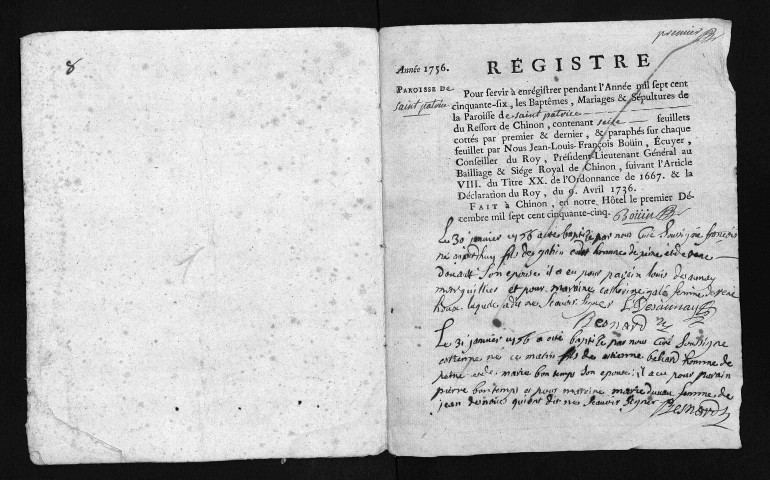 8
premier
RÉGISTRE
Année 1756.
PAROISSE DE
saint patrice
Pour servir à enrégistrer pendant l'Année mil sept cent
cinquante-six, les Baptêmes, Mariages & Sépultures de
la Paroisse de saint patrice
du Ressort de Chinon, contenant seize feuillets
cottés par premier & dernier, & paraphés sur chaque
feuillet par Nous Jean-Louis-François Boüin, Écuyer,
Conseiller du Roy, Président Lieutenant Général au
Bailliage & Siége Royal de Chinon, suivant l'Article
VIII. du Titre XX. de l'Ordonnance de 1667. & la
Déclaration du Roy, du 9. Avril 1736.
FAIT à Chinon, en notre Hôtel le premier Dé-
cembre mil sept cent cinquante-cinq. Boüin
Le 30 janvier 1756 a été baptisé par nous Curé Soussigné françois
né aujourd'huy fils de homme de peine et de rene
son épouse; il a eu pour parain louis desaunay
et pour maraine catherine femme de rene
ne scavoir signer L Desaunay
Besnard
Le 31 janvier 1756 a été baptisé par nous Curé Soussigné
estienne né ce matin fils de estienne homme de
peine et de marie bontemps son épouse; il a eu pour parain
pierre bontemps et pour maraine marie femme de
jean qui ont dit ne scavoir signer Besnard